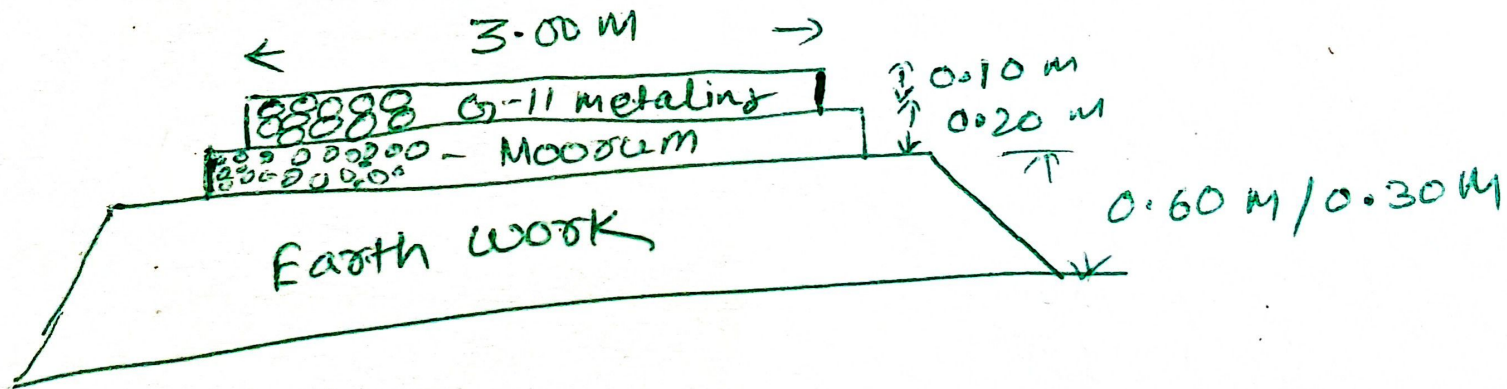 3.00 M
G-11 metaling
0.10 M
0.20 M
Moorum
0.60 M / 0.30 M
Earth work